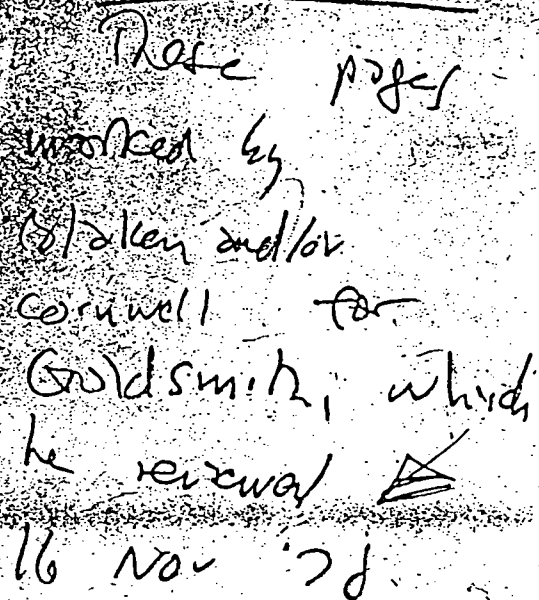 These pages
marked by
Blakey and/or
Cornwell for
Goldsmith, which
he reviewed
16 Nov '78.